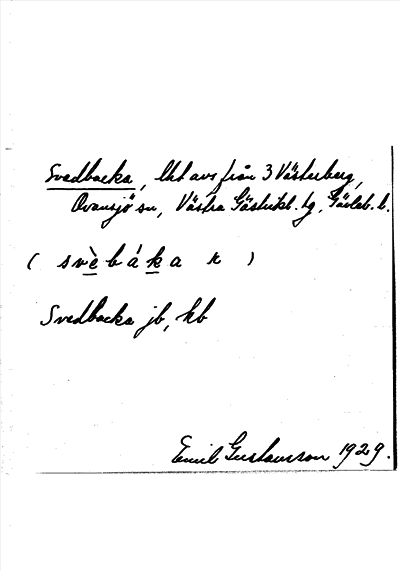 Svedbacka, lht avs från 3 Västerberg,
Ovansjö sn, Västra Gästrikl. tg, Gävleb. l.
( svèbáka r )
Svedbacka jb, kb
Emil Gustavsson 1929.